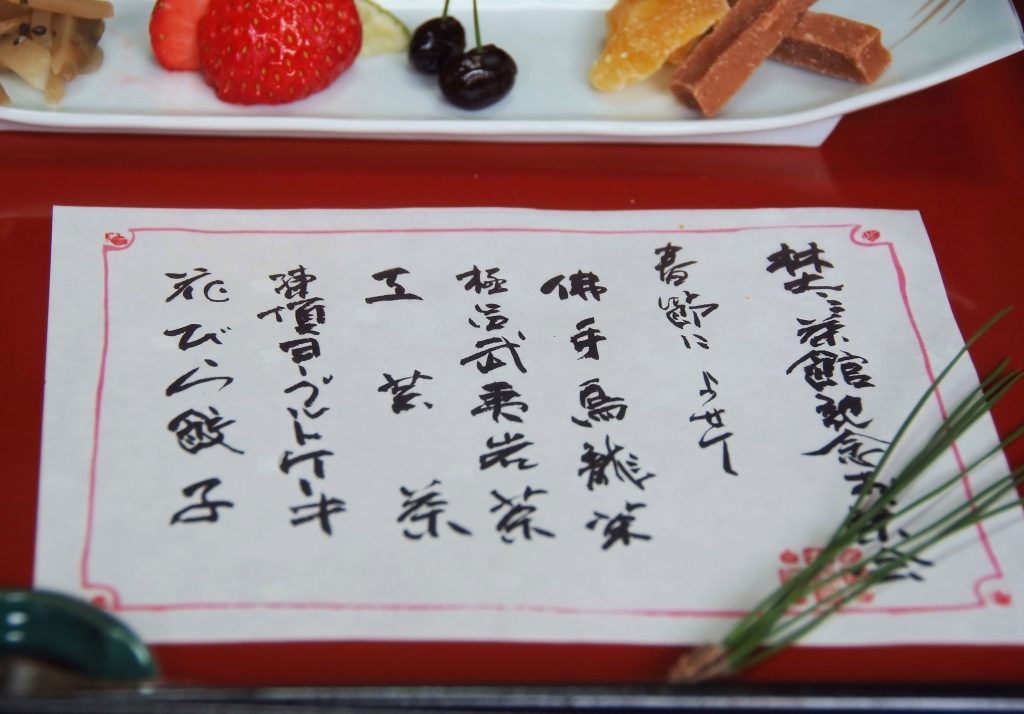 茶館記念お茶会
春節によせて
佛手烏龍茶
極品武夷岩茶
工芸茶
陳項ヨーグルトケーキ
花びら餃子